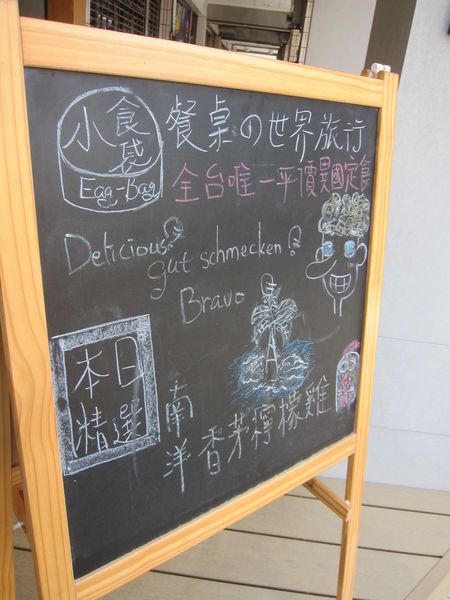 小食袋
Egg-Bag
餐桌の世界旅行
全台唯一平價異國定食
Delicious
gut schmecken!
Bravo
本日
精選
南洋香茅檸檬雞